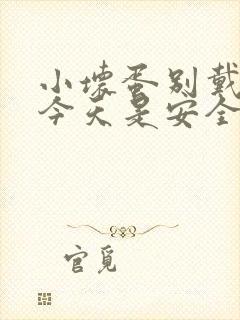 小坏蛋别戴
今天是安全
官觅